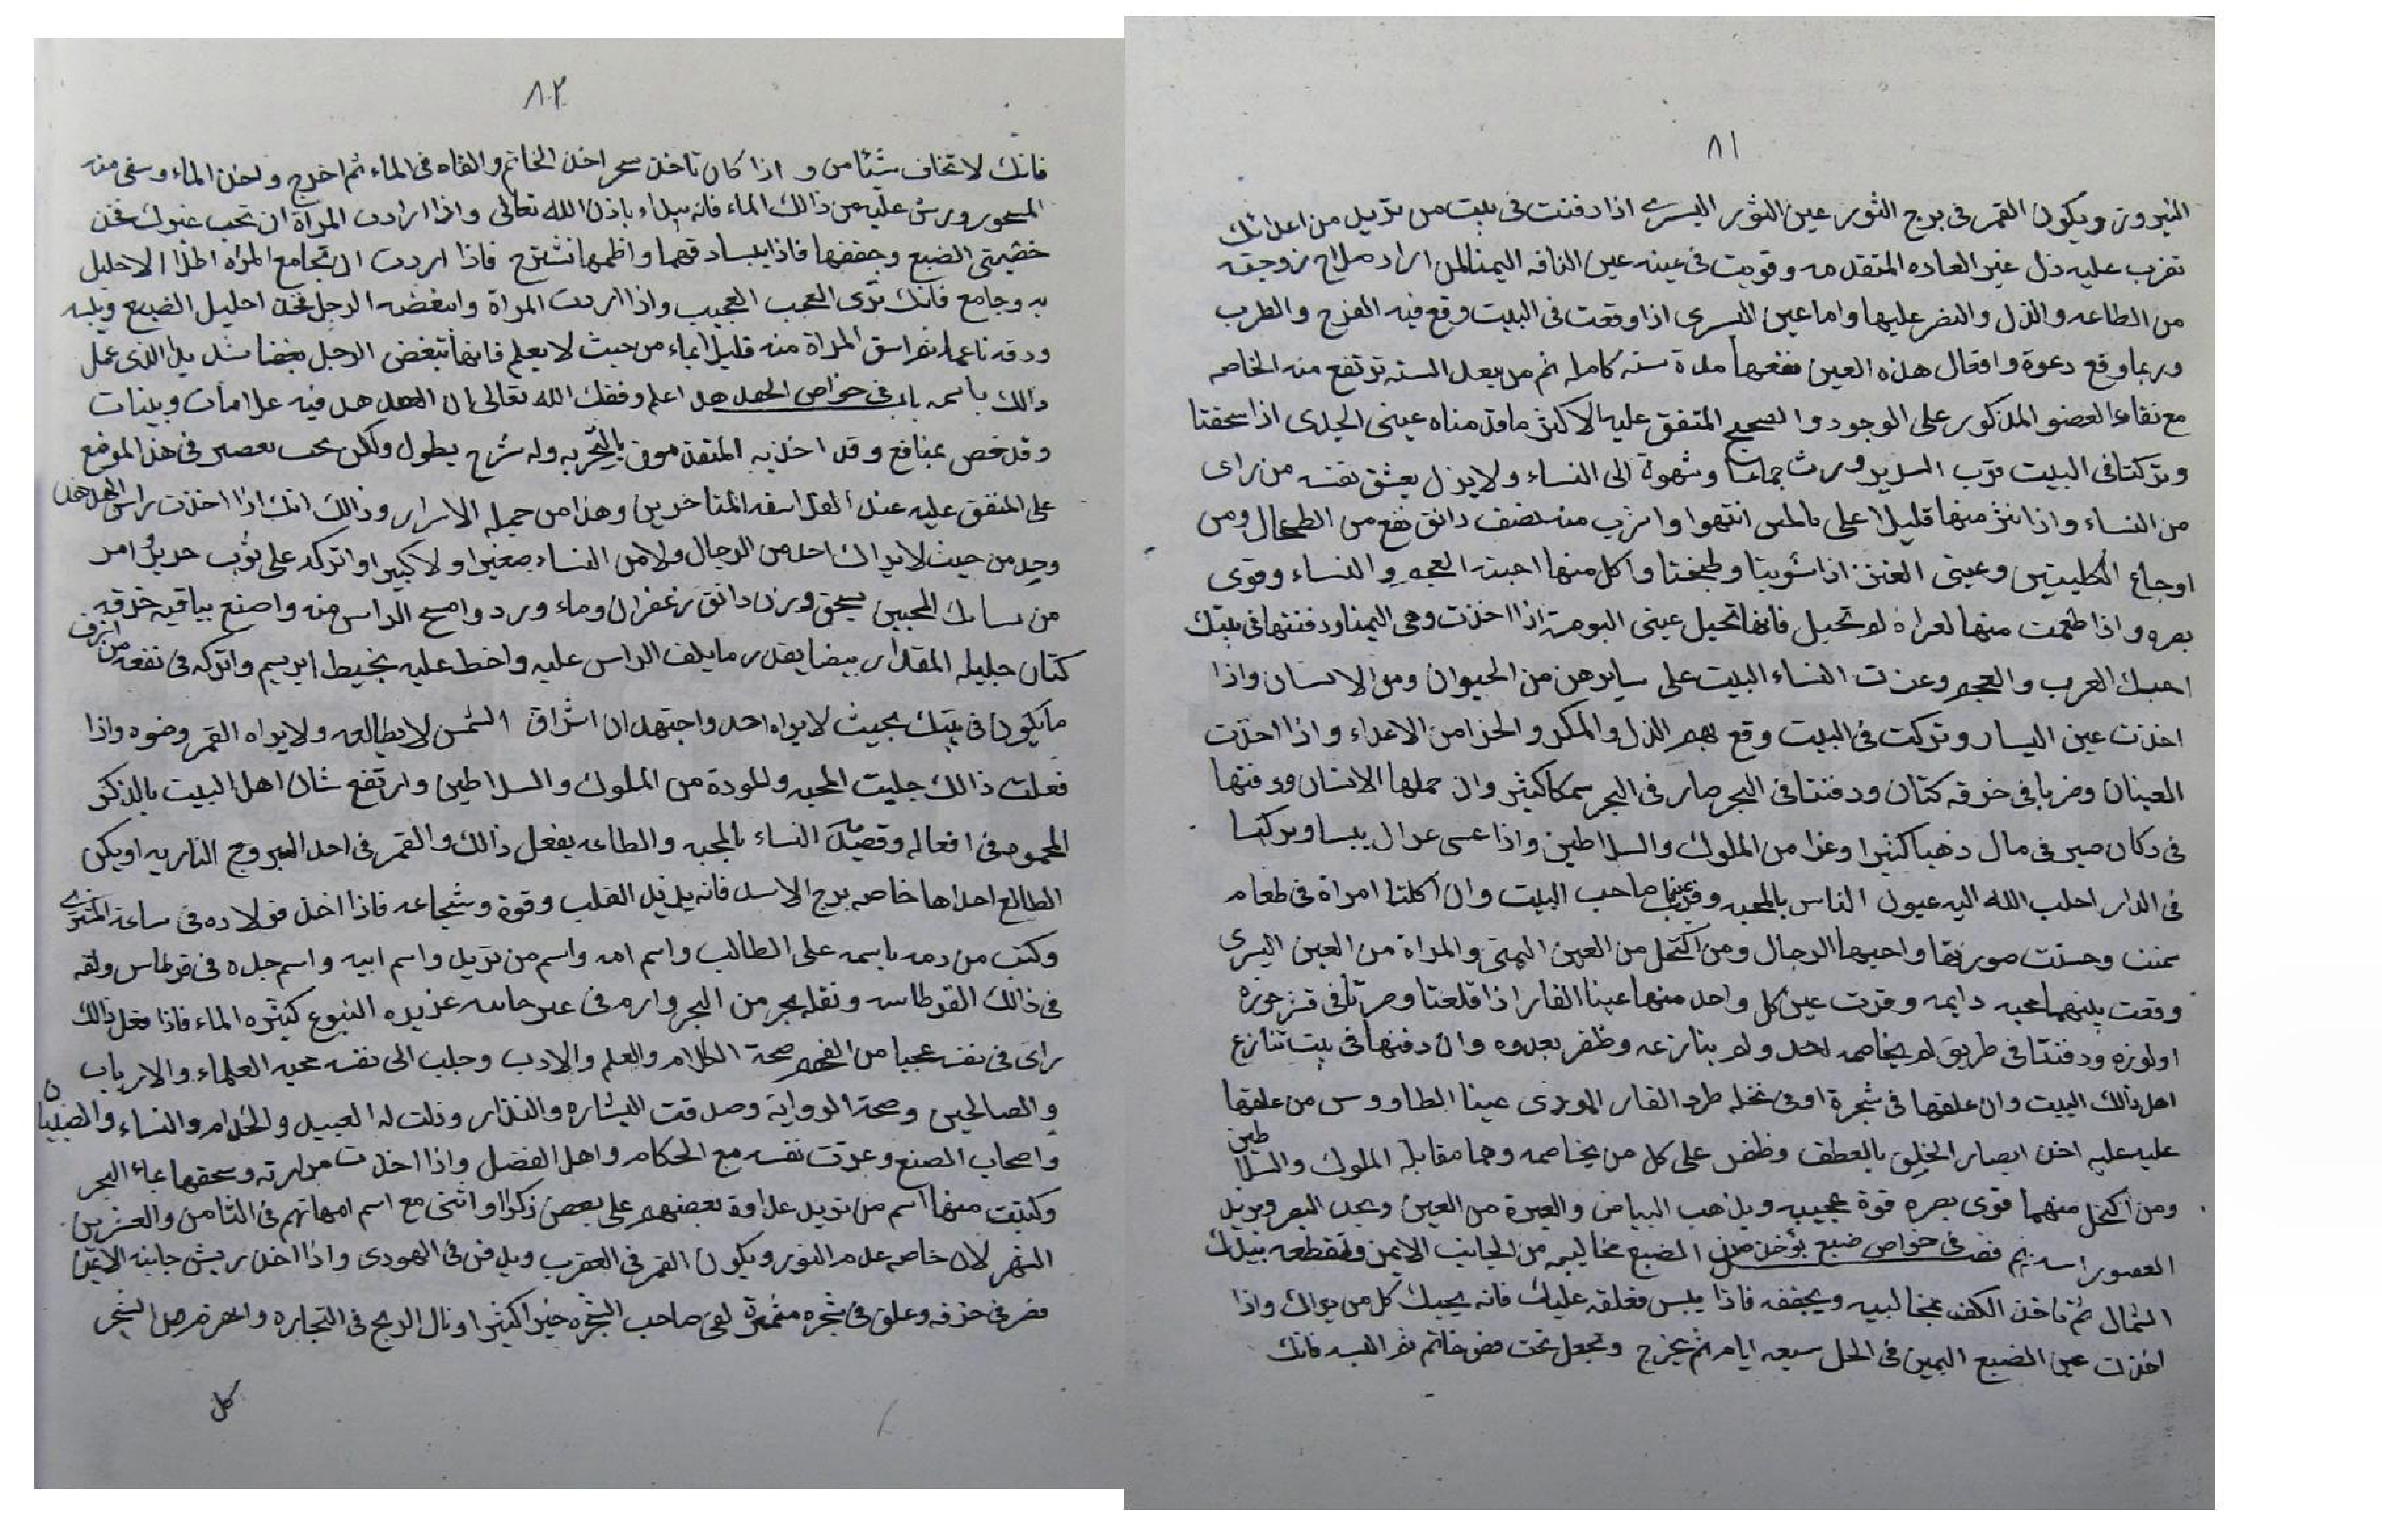 ٨١
النيروز ويكون القمر في برج الثور عين الثور اليسرى اذا دفنت في بيت من تريد من اعدائك
تقرب عليه دل غير العاده المتقدمه وقويت في عينه عين الناقه اليمنا لمن اراد صلاح زوجته
من الطاعه والذل والنصر عليها واما عين اليسرى اذا وقعت في البيت وقع فيه الفرح والطرب
وربما وقع دعوة وافعال هذه العين نفعها مدة سنه كامله ثم من بعد السنه ترتفع منه الخاصه
مع نقاء العضو المذكور على الوجود والصحيح المتفق عليه الاكثر ما قدمناه عينى الجدى اذا سحقتا
وتركتا في البيت قرب السرير ورث جماعا وشهوة الى النساء ولا يزل يعشق نفسه من راى
من النساء واذا نثر منها قليلا على بالمس انتهوا واشرب منه نصف دانق نفع من الطحال ومن
اوجاع الكليتين وعينى العنز اذا شويتا وطبختا واكل منها احبته العجم والنساء وقوى
بصره واذا طعمت منها لمراة لم تحبل فانها تحبل عينى البومة اذا اخذت وهى اليمنا ودفنتها في بيتك
احبك العرب والعجم وعزت النساء البيت على سايرهن من الحيوان ومن الانسان واذا
اخذت عين اليسار وتركت في البيت وقع بهم الذل والمكر والخزا من الاعداء واذا اخذت
العينان وضربا في خرقه كتان ودفنتا في البحر صار في البحر سمكا كثير وان حملها الانسان ودفنها
في دكان صير في مال ذهبا كثيرا وعزا من الملوك والسلاطين واذا يبسا وتركتا
في الدار احلب الله اليه عيون الناس بالمحبه صاحب البيت وان اكلتا امراة في طعام
سمنت وحسنت صورتها واحبها الرجال ومن اكتحل من العين اليمنى والمراة من العين اليسرى
وقعت بينهما محبه دايمه وقرت عين كل واحد منها عينا الفار اذا قلعتا وصرتا في قشر جوزه
او لوزه ودفنتا في طريق لم يخاصمه احد ولم ينازعه وظفر بعدوه وان دفنها في بيت تنازع
اهل ذالك البيت وان علقها في شجرة او في نخله طرد الفار الموذى عينا الطاووس من علقها
عليه اخذ ابصار الخلق بالعطف وظفر على كل من يخاصمه وهما مقابلة الملوك والسلاطين
ومن اكتحل منهما قوى بصره قوة عجيبه ويذهب البياض والعبرة من العين ويحد البصر ويزيل
فصل في خواص ضبع يؤخذ من الضبع مخاليبه من الجانب الايمن وتقطعه بيدك
الشمال ثم تاخذ الكف بمخاليبه ويجففه فاذا يبس فعلقه عليك فانه يحبك كل من يراك واذا
اخذت عين الضبع اليمين في الخل سبعه ايام ثم يخرج وتجعل تحت فص خاتم فانك
٨٢
فانك لا تخاف شيئا من و اذا كان تاخذ سحر اخذ الخاتم والقاه في الماء ثم اخرج واخذ الماء وسقى منه
المسحور ورش عليه من ذالك الماء فانه يبراء باذن الله تعالى واذا ارادت المراة ان تحب غيرك فخذ
خصيتى الضبع وجففها فاذا يبسا دقهما واطمها تشترج فاذا اردت ان تجامع المراه اطلا الاحليل
به وجامع فانك ترى العجب العجيب واذا اردت المراة وابغضه الرجل فخذ احليل الضبع ويبسه
ودقه ناعما ثم اسق المراة منه قليلا بماء من حيث لا يعلم فانها تبغض الرجل بغضا شديدا الذى عمل
ذالك باسمه باب في خواص الهدهد اعلم وفقك الله تعالى ان الهدهد فيه علامات وبينات
وقد خص بمنافع وقد اخذ به المتقدمون بالتجربه وله شرح يطول ولكن نحب نعصر في هذا الموضع
على المتفق عليه عند الفلاسفه المتاخرين وهذا من جمله الاسرار وذالك انك اذا اخذت راس الهدهد
وحد من حيث لا يراك احد من الرجال ولا من النساء صغيرا ولا كبيرا واتركه على ثوب حرير
من المحبين يسحق وزن دانق زعفران وماء ورد وامسح الراس منه واصنع بباقيه خرقه
كتان جليله المقدار بيضا بقدر ما يلف الراس عليه واخط عليه بخيط ابريسم واتركه في نفعه من اشرف
ما يكون في بيتك بحيث لا يراه احد واجتهد ان اشراق الشمس لا يطالعه ولا يراه القمر وضوه واذا
فعلت ذالك جلبت المحبه والمودة من الملوك والسلاطين وارتفع شان اهل البيت بالذكر
المحمود في افعاله وقصدك النساء بالمحبه والطاعه يفعل ذالك والقمر في احد البروج الناريه او يكن
الطالع احداها خاصه برج الاسد فانه يزيد القلب وقوة وشجاعه فاذا اخذ في ساعة المشترى
وكتب من دمه باسمه على الطالب واسم امه واسم من تريد واسم ابيه واسم جده في قرطاس ولفه
في ذالك القرطاس وثقله بحجر من البحر وارمه في عزيره الينبوع كثيره الماء فاذا فعل ذالك
راى في نفسه عجبا من الفهم صحة الكلام والعلم والادب وجلب الى نفسه محبه العلماء والارباب
والصالحين وصحة الرواية وصدقت البشاره والنذار وذلت له العبيد والخدام والنساء والصبيان
واصحاب الصنع وعزت نفسه مع الحكام واهل الفضل واذا اخذت مرارته وسحقها بماء البحر
وكتبت منها اسم من تريد عداوة بعضهم على بعض ذكرا او انثى مع اسم امهاتهم في الثامن والعشرين
الشهر لان خاصه عدم النور ويكون القمر في العقرب ويدفن في الهودى واذا اخذ ريش جانبه الايمن
فصر في خرقه وعلق في شجره مثمرة لقى صاحب الشجره خيرا كثيرا ونال الربح في التجاره الشجر
كل